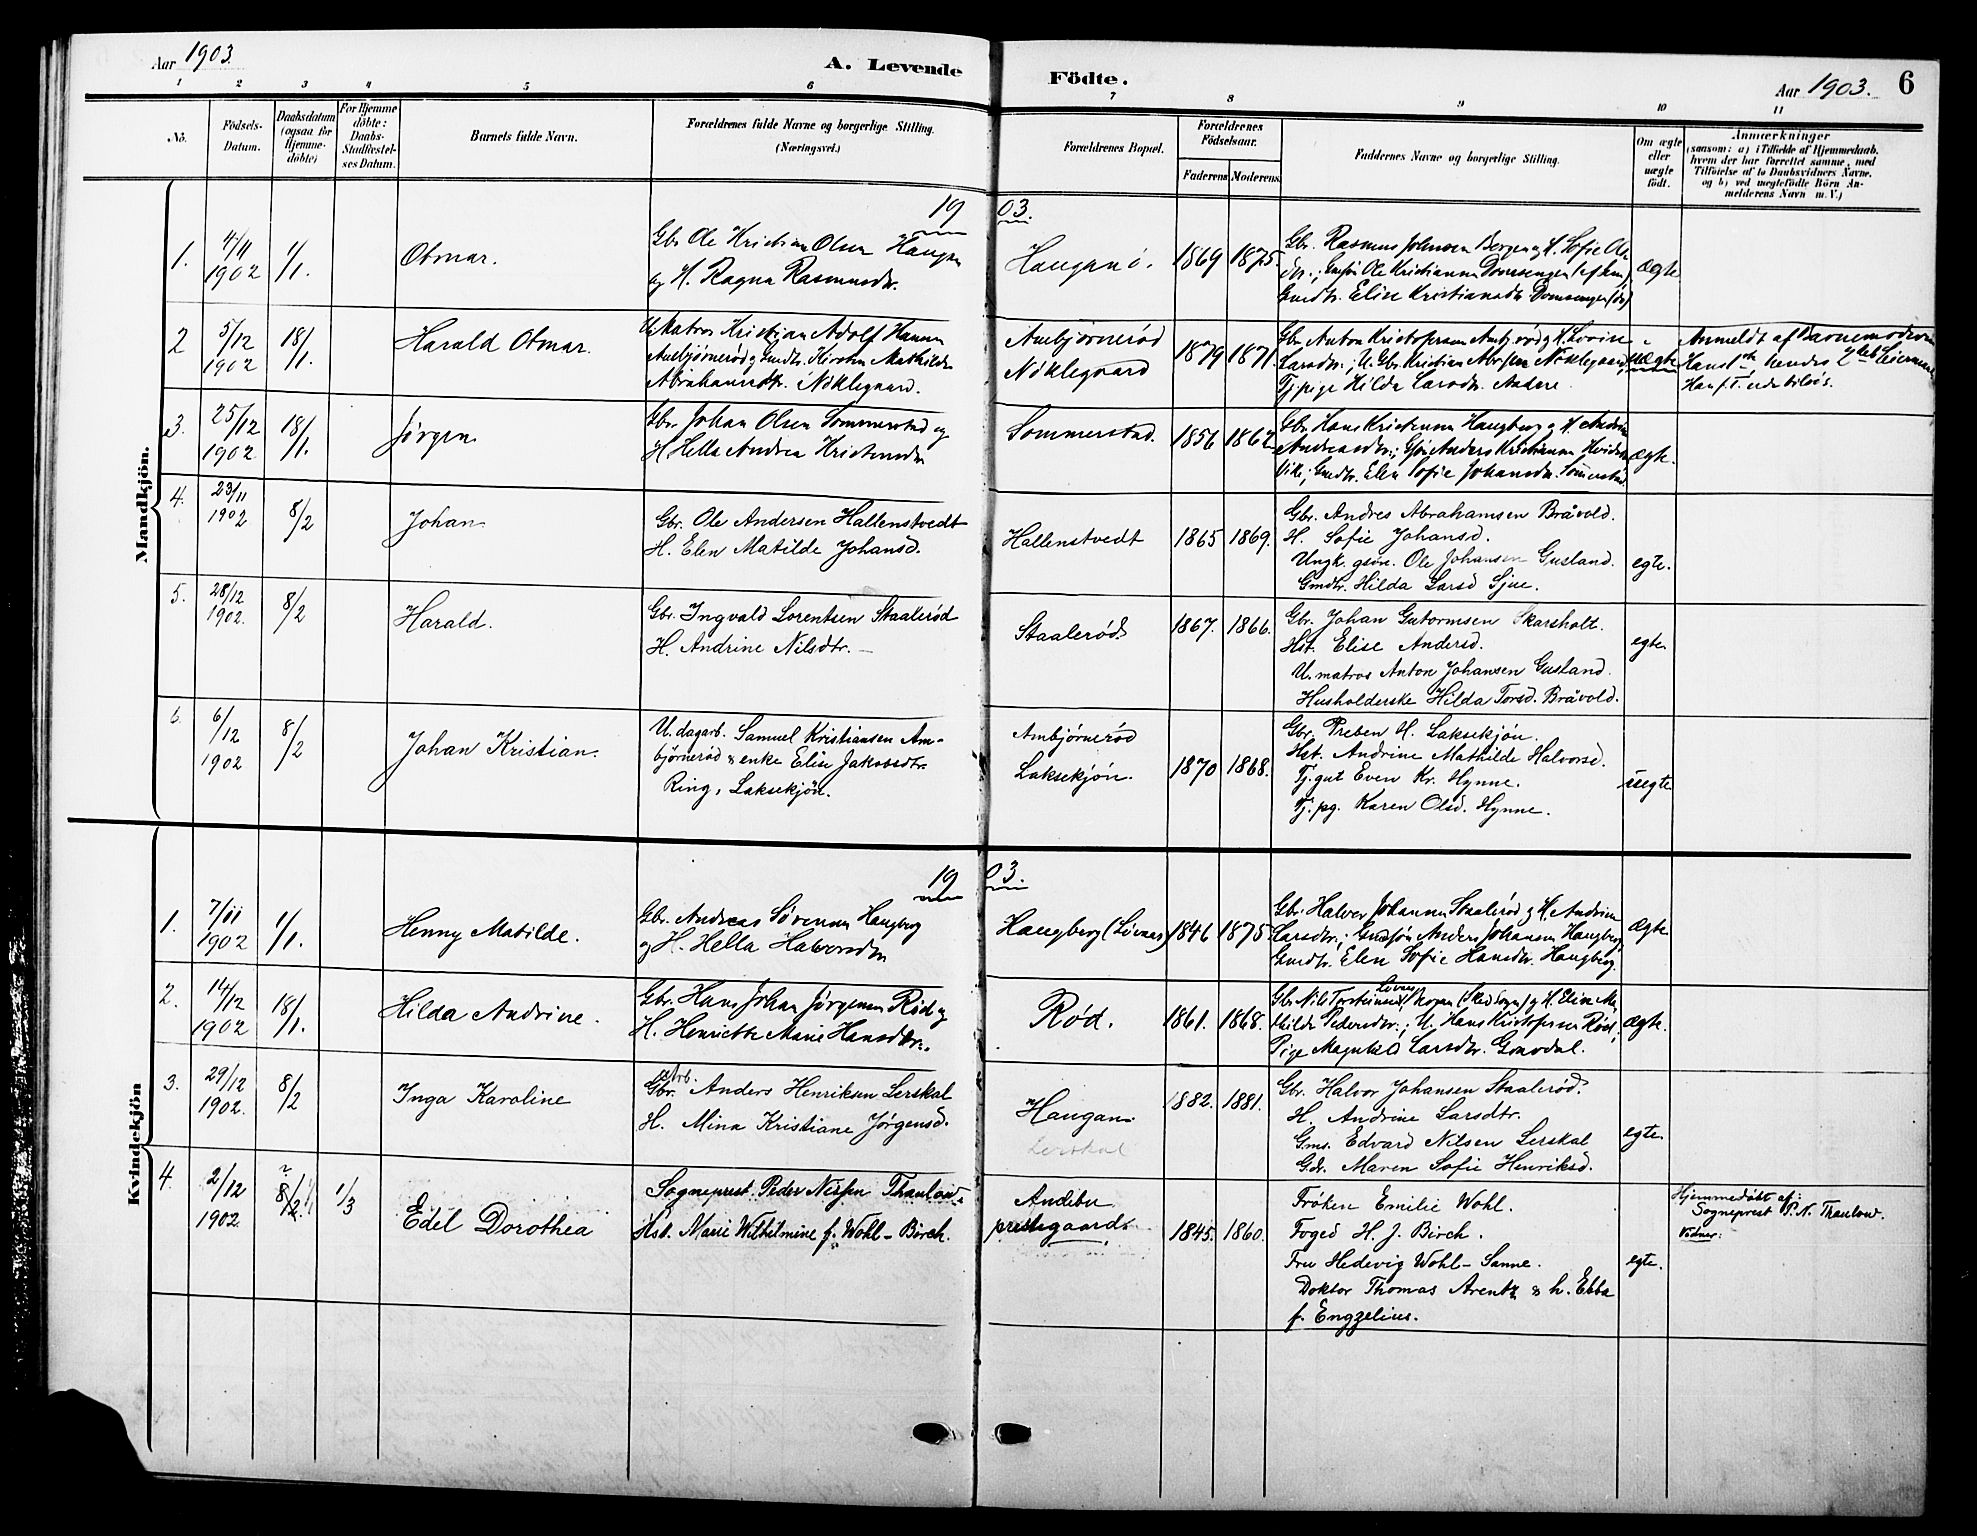 Aar 1903.
A. Levende Födte.
Aar 1903. 6
1 2 3 4 5 6 7 8 9 10 11
No.
Födsels-
Datum.
Daabsdatum
(ogsaa for
Hjemme-
döbte)
For Hjemme
döbte:
Daabs-
Stadfestel-
ses Datum.
Barnets fulde Navn.
Forældrenes fulde Navne og borgerlige Stilling.
(Næringsvei.)
Forældrenes Bopæl.
Forældrenes
Födselsaar.
Faderens Moderens
Faddernes Navne og borgerlige Stilling.
Om ægte
eller
uægte
födt.
Anmærkninger
(saasom: a) i Tilfælde af Hjemmedaab,
hvem der har forrettet samme, med
Tilföielse af to Daabsvidners Navne,
og b) ved uægtefödte Börn An-
melderens Navn m. V.)
Mandkjön.
1903.
1. 4/11 1902 1/1. Otmar.
Gbr. Ole Kristian Olsen Haugan
og H. Ragna Rasmusdtr.
Haugan ö. 1869 1875.
Gbr. Rasmus Johnsen Bergan og H. Sofie Ols-
dtr.; Ole Kristiansen
Gmdtr. Elise Kristiansdtr.
Ægte
2 5/12 1902 18/1. Harald Otmar.
U. Matros Kristian Adolf Hansen
Ambjørnerød og Gmdtr. Kirsten Mathilde
Abrahamsdtr. Nøklegaard.
Ambjørnerød
Nöklegaard
1879 1871.
Gbr. Anton Kristofersen Ambj.rød og H. Lovise
Larsdtr.; U. Gbr. Kristian Abr.sen Nöklegaard,
Tj.pige Hilda Larsdtr. Askere.
uægte
Anmeldt af Barnemoderen
Hans 1ste, hendes 2det Leiermaal
Han f. T. udebliver.
3. 25/12 1902 18/1. Jörgen
Gbr. Johan Olsen Sommerstad og
H. Hella Andrea Kristensdtr
Sommerstad. 1856 1862
Gbr. Hans Kristensen Haugberg og H. Andrine
Andreasdtr.; Anders Kristiansen
Gmdtr. Elen Sofie Johansdtr. Sommerstad
Ægte.
4. 23/11 1902 8/2 Johan
Gbr. Ole Andersen Hallenstvedt
H. Elen Matilde Johansd.
Hallenstvedt 1865 1869.
Gbr. Andres Abrahamsen Bråvold.
H. Sofie Johansd.
Ungk. gsön. Ole Johansen Gusland.
Gmdtr. Hilda Larsd Sjue.
egte.
5. 28/12 1902. 8/2 Harald.
Gbr. Ingvald Lorentsen Staalerød
H. Andrine Nilsdtr. —
Staalerød 1867. 1866.
Gbr. Johan Gutormsen Skarsholt.
Hst. Elise Andersd.
U. matros Anton Johansen Gusland.
Husholderske Hilda Torsd. Bråvold.
egte.
6. 6/12 1902 8/2 Johan Kristian.
U. dagarb. Samuel Kristiansen Am-
björneröd & enke Elise Jakobsdtr.
Ring, Laksekjön.
Ambjörneröd
Laksekjön.
1870 1868.
Gbr. Preben H. Laksekjön.
Hst. Andrine Mathilde Halvorsd.
Tj. gut Even Kr. Hynne.
Tj. pg. Karen Olsd. Hynne.
uegte
Kvindekjön
1903.
1. 7/11 1902 1/1. Henny Matilde.
Gbr. Andreas Sörensen Haugberg
og H. Hella Halvorsdtr
Haugberg (Lövnes) 1846 1875
Gbr. Halvor Johansen Staaleröd og H. Andrine
Larsdtr.; Anders Johansen Haugberg,
Gmdtr. Elen Sofie Hansdtr. Haugberg.
Ægte
2. 14/12 1902 18/1. Hilda Andrine.
Gbr. Hans Johan Jørgensen Rød og
H. Henriette Marie Hansdtr.
Rød. 1861. 1868.
Gbr. Nils Torsteinsen Skopan (Sked. Sogn) og H. Elise Ma-
thilde Pedersdtr.; U. Hans Kristofersen Rød,
Pige Magnhild Larsdtr.
Ægte.
3. 29/12 1902. 8/2 Inga Karoline
Gbr. Arb. Anders Henriksen Lerskal
H. Mina Kristiane Jørgensd.
Haugan
Lerskal
1882. 1881.
Gbr. Halvor Johansen Staaleröd.
H. Andrine Larsdtr.
Gms. Edvard Nilsen Lerskal
Gdr. Maren Sofie Henriksd.
egte.
4. 2/12 1902. ? 8/2 1/3 Edel Dorothea
Sogneprest Peder Nissen Thaulow
Hst. Marie Wilhelmine f. Wohl - Birch.
Andebu
prestegaard.
1845. 1860.
Fröken Emilie Wohl.
Foged H. J. Birch.
Fru Hedevig Wohl - Sanne.
Doktor Thomas Arentz & h. Ebba
f. Engzelius.
egte.
Hjemmedöbt af:
Sogneprest P. N. Thaulow.
Vidner: